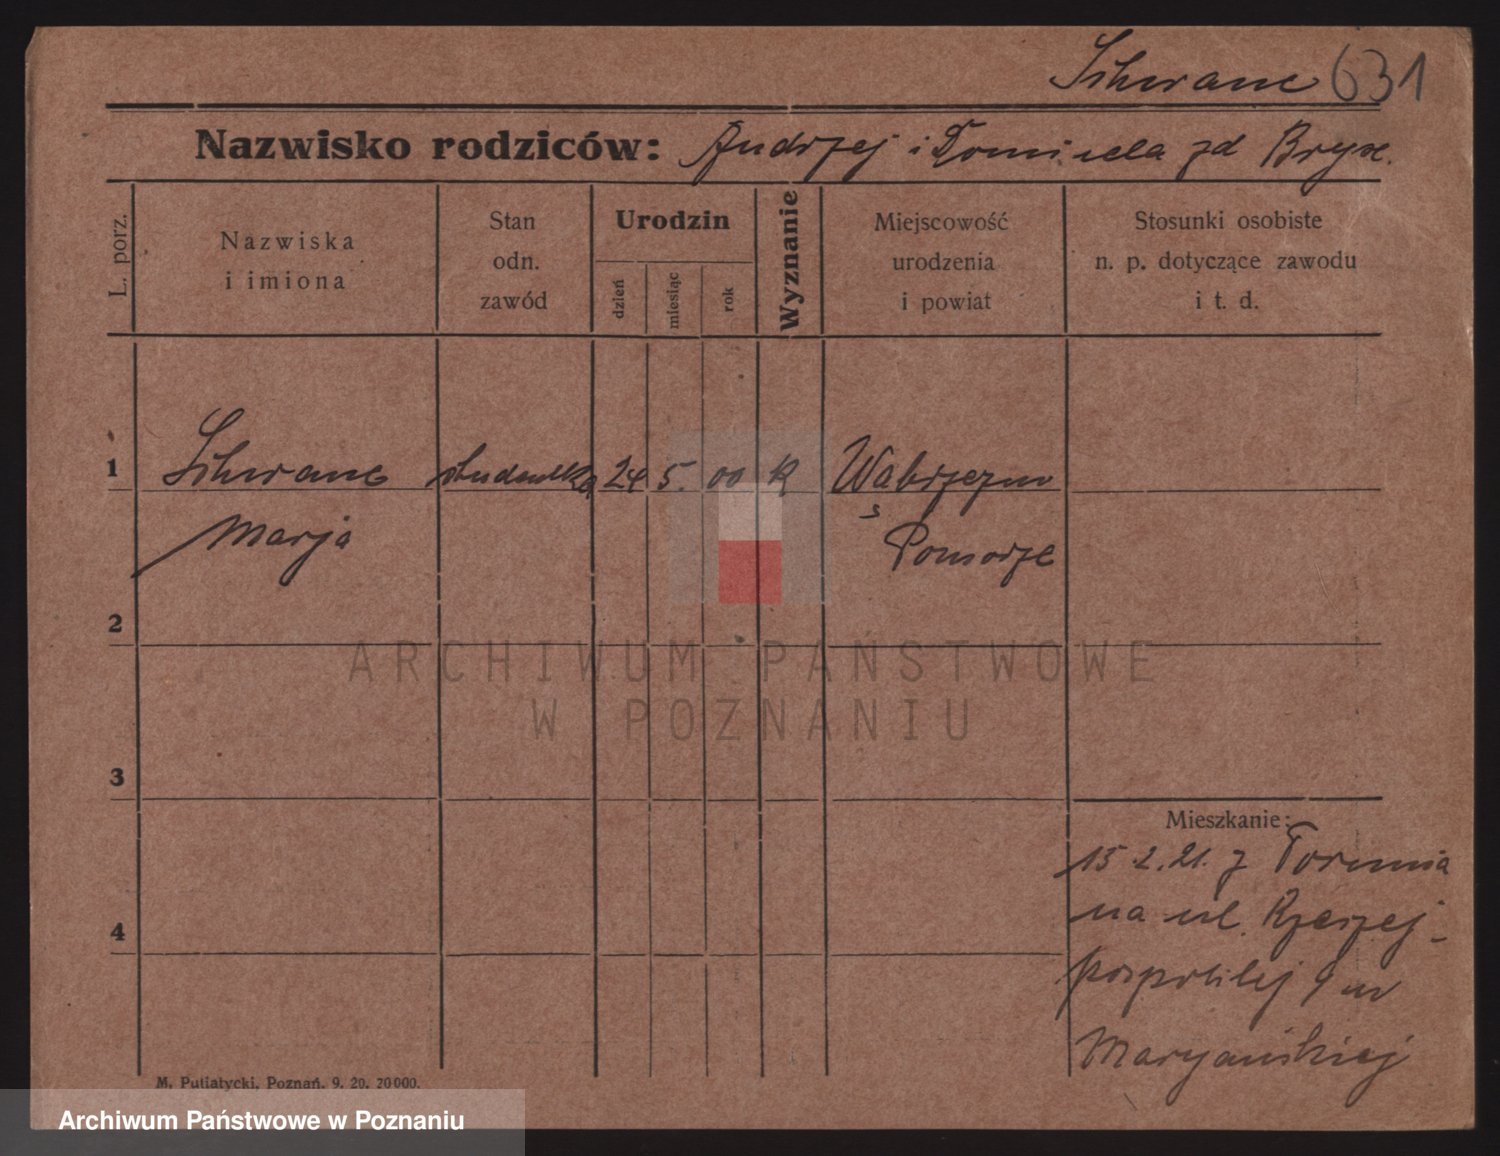 Schwanc 631
Nazwisko rodziców: Andrzej i Domicela zd
L. porz.
Nazwiska
i imiona
Stan
odn.
zawód
Urodzin
dzień
miesiąc
rok
Wyznanie
Miejscowość
urodzenia
i powiat
Stosunki osobiste
n. p. dotyczące zawodu
i t. d.
1 Schwanc studentka 24 5. 00 k Wabrzezno
Marja Pomorze
2
ARCHIWUM PAŃSTWOWE
W POZNANIU
3
Mieszkanie:
15.2.21. z Torunia
4 na ul. Rzeszej-
pospolitej 9 w
Maryańskiej
M. Putiatycki, Poznań. 9. 20. 20000.
Archiwum Państwowe w Poznaniu